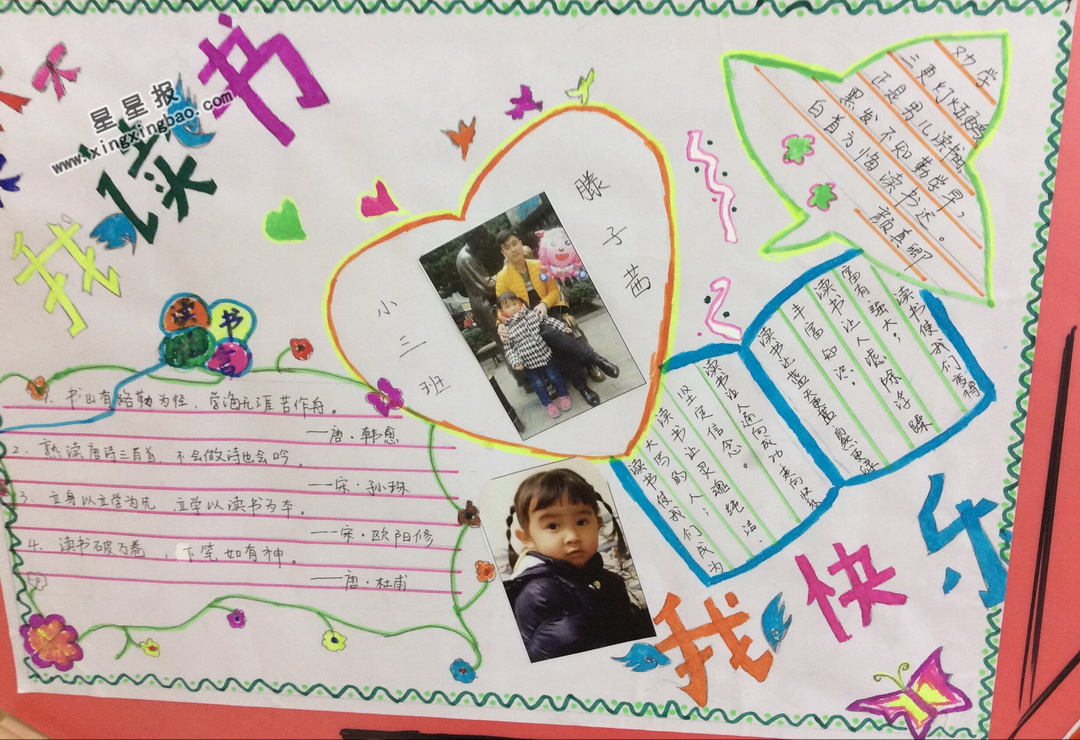 我读书
星星报
www.xingxingbao.com
读书
1. 书山有路勤为径，学海无涯苦作舟。
——唐·韩愈
2. 熟读唐诗三百首，不会做诗也会吟。
——宋·孙洙
3. 立身以立学为先，立学以读书为本。
——宋·欧阳修
4. 读书破万卷，下笔如有神。
——唐·杜甫
小三班
滕子茜
劝学
三更灯火五更鸡
正是男儿读书时，
黑发不知勤学早，
白首方悔读书迟。
颜真卿
读书使我们变得
强大；
富有
读书让人涤除浮躁
丰富知识。
读书让
读书让人通向成功
坚定信念。
读书让灵魂纯洁、
大写的人；
读书使我们成为
我快乐